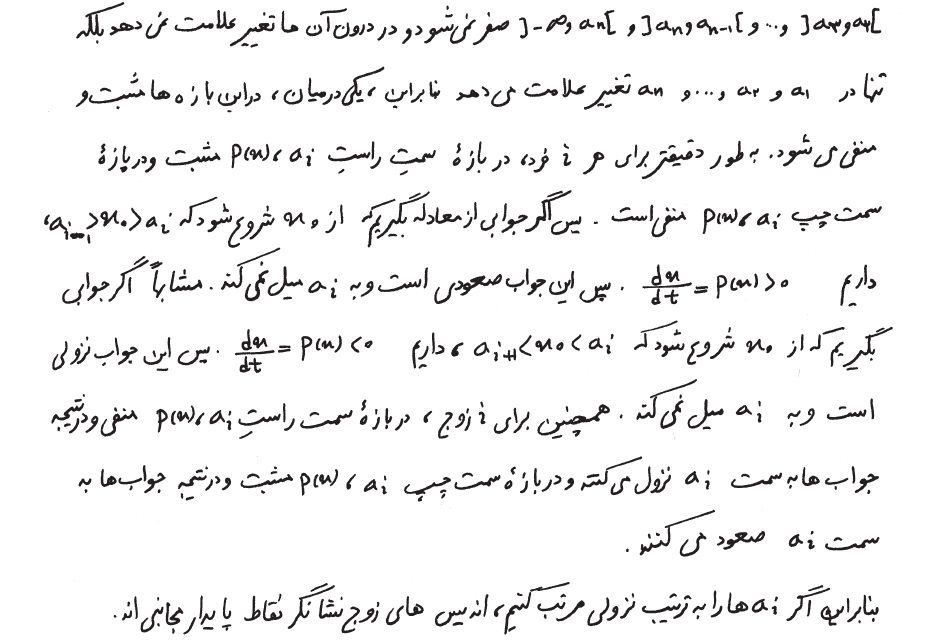 ]a۳ و a۲[ و ... و ]an و an-۱[ و ]-∞ و an[ صفر نمی‌شود و در درون آن ها تغییر علامت نمی دهد بلکه
تنها در a۱ و a۲ و ... و an تغییر علامت می دهد بنابراین ، یکی درمیان ، در این بازه ها مثبت و
منفی می شود. به طور دقیقتر برای هر i فرد، در بازهٔ سمتِ راستِ ai ، P(x) مثبت و در بازهٔ
سمت چپ ai ، P(x) منفی است . پس اگر جوابی از معادله بگیریم که از x۰ شروع شود که ai-۱>x۰>ai ،
داریم dx/dt = P(x) > ۰ . پس این جواب صعودی است و به ai میل نمی کند . مشابهاً اگر جوابی
بگیریم که از x۰ شروع شود که ai+۱<x۰<ai ، داریم dx/dt = P(x) < ۰ . پس این جواب نزولی
است و به ai میل نمی کند . همچنین برای i زوج ، در بازهٔ سمت راستِ ai ، P(x) منفی و در نتیجه
جواب ها به سمت ai نزول می کنند و در بازهٔ سمت چپ ai ، P(x) مثبت و در نتیجه جواب ها به
سمت ai صعود می کنند .
بنابراین اگر ai ها را به ترتیب نزولی مرتب کنیم ، اندیس های زوج نشانگر نقاط پایدار مجانبی اند .